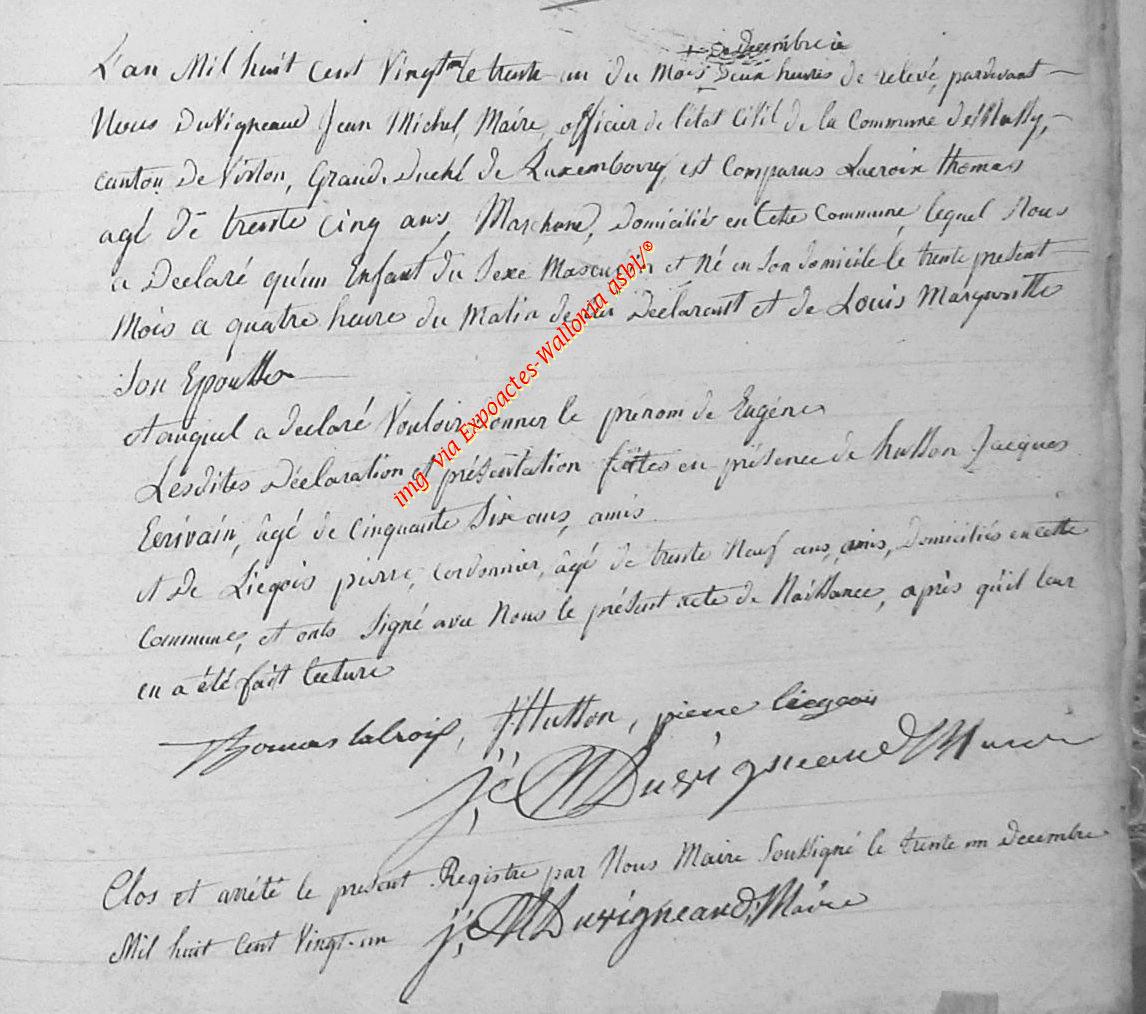 de decembre à
L'an Mil huit Cent Vingt un le trente un du Mois deux heures de relevé, pardevant
Nous Duvigneaud Jean Michel, Maire, officier de l'état Civil de la Commune de
canton De Virton, Grand. Duché de Luxembourg est Comparus Lacroix thomas
agé De trente Cinq ans, Marchand, domicilié en Cette Commune, lequel Nous
a Declaré qu'un Enfant du Sexe Masculin et Né en Son domicile le trente present
Mois a quatre heure du Matin de lui Declarant et de Louis Margueritte
Son Epousse
et auquel a declaré Vouloir donner le prénom de Eugéne
Lesdites Déclaration et présentation faites en présence de husson Jacques
Ecrivain, âgé de Cinquante Six ans, amis
et De Liégois pierre, Cordonnier, âgé de trente Neuf ans, amis, Domiciliés en cette
Commune, et onts Signé avec Nous le présent acte de Naissance, après qu'il leur
en a été fait lecture
Thomas lacroix, J Husson, pierre liegeois
J. M Duvigneaud Maire
Clos et arrêté le present Registre par Nous Maire Soussigné le trente un Decembre
Mil huit Cent Vingt-un J. M Duvigneaud, Maire
img via Expoactes-Wallonia asbl/®